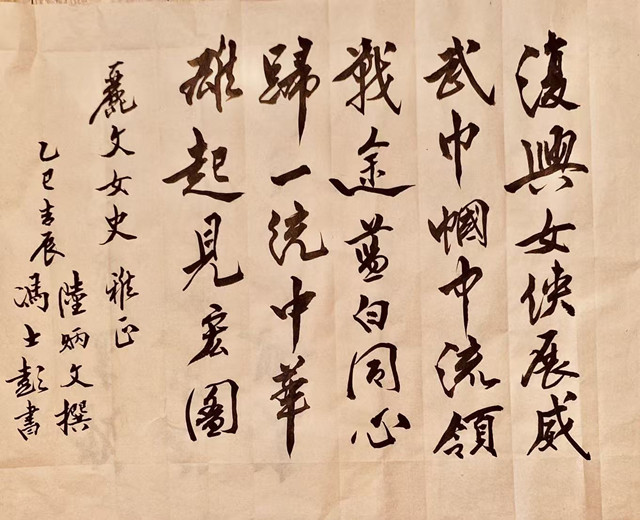 復興女俠展威
武巾幗中流領
戰途藍白同心
歸一統中華
雄起見宏圖
麗文女史 雅正
乙巳吉辰
陸炳文撰
馮士彭書